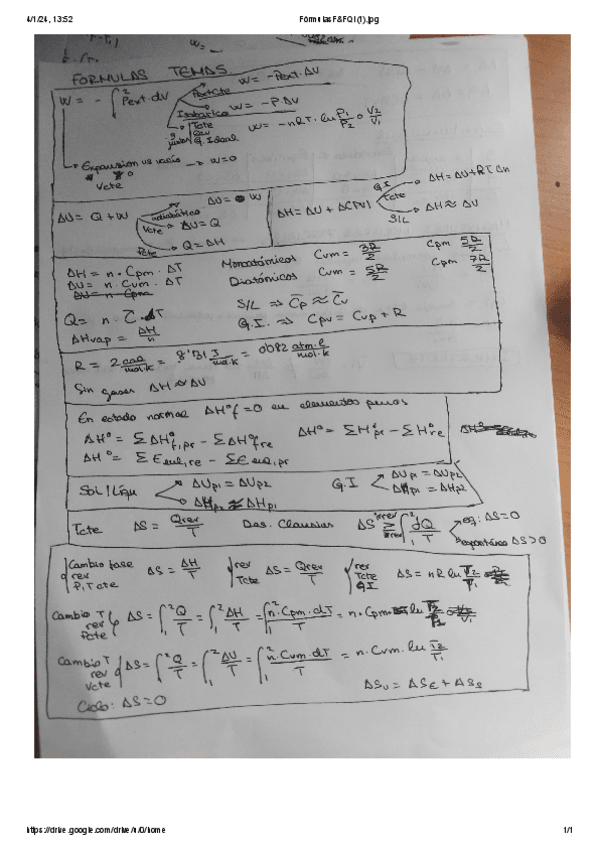 4/1/24, 13:52
Fórmulas F&FQI (1).jpg
FORMULAS TEMA 5
W = - ∫₁² Pext·dV
Pext cte W = -Pext·ΔV
Isobárico W = -P·ΔV
Tcte
G. Ideal W = -nRT·ln P₁/P₂ o V₂/V₁
Expansion vs vacío → W=0
Vcte
ΔU = Q + W
adiabático ΔU = W
Vcte ΔU = Q
Pcte Q = ΔH
ΔH = ΔU + Δ(PV)
G.I. Tcte ΔH = ΔU + RTΔn
S/L ΔH ≈ ΔU
ΔH = n·Cpm·ΔT
ΔU = n·Cvm·ΔT
ΔU = n·Cpm
Monoatómicos Cvm = 3R/2 Cpm 5R/2
Diatómicos Cvm = 5R/2 Cpm 7R/2
Q = n·C̅·dT
S/L ⇒ C̅p ≈ C̅v
ΔHvap = ΔH/n
G.I. ⇒ Cpv = Cvp + R
R = 2 cal/mol·K = 8'31 J/mol·K = 0'082 atm·l/mol·K
Sin gases ΔH ≈ ΔU
En estado normal ΔH°f = 0 en elementos puros
ΔH° = ΣΔH°f,pr - ΣΔH°f,re ΔH° = ΣH°pr - ΣH°re
ΔH° = ΣEenl,re - ΣEenl,pr
Sol/Líqu ΔUp1 = ΔUp2
ΔHp2 ≠ ΔHp1
G.I ΔUp1 = ΔUp2
ΔHp1 = ΔHp2
Tcte ΔS = Qrev/T Des. Clausius ΔS ≥ ∫₁² dQ/T
eq: ΔS=0
espontáneo ΔS>0
Cambio fase rev P,Tcte ΔS = ΔH/T
rev Tcte ΔS = Qrev/T
rev Tcte GI ΔS = nR ln V₂/V₁
Cambio T rev Pcte ΔS = ∫₁² Q/T = ∫₁² ΔH/T = ∫₁² n·Cpm·dT/T = n·Cpm ln T₂/T₁
Cambio T rev Vcte ΔS = ∫₁² Q/T = ∫₁² ΔU/T = ∫₁² n·Cvm·dT/T = n·Cvm·ln T₂/T₁
ΔSu = ΔSE + ΔSs
Ciclo: ΔS=0
https://drive.google.com/drive/u/0/home
1/1